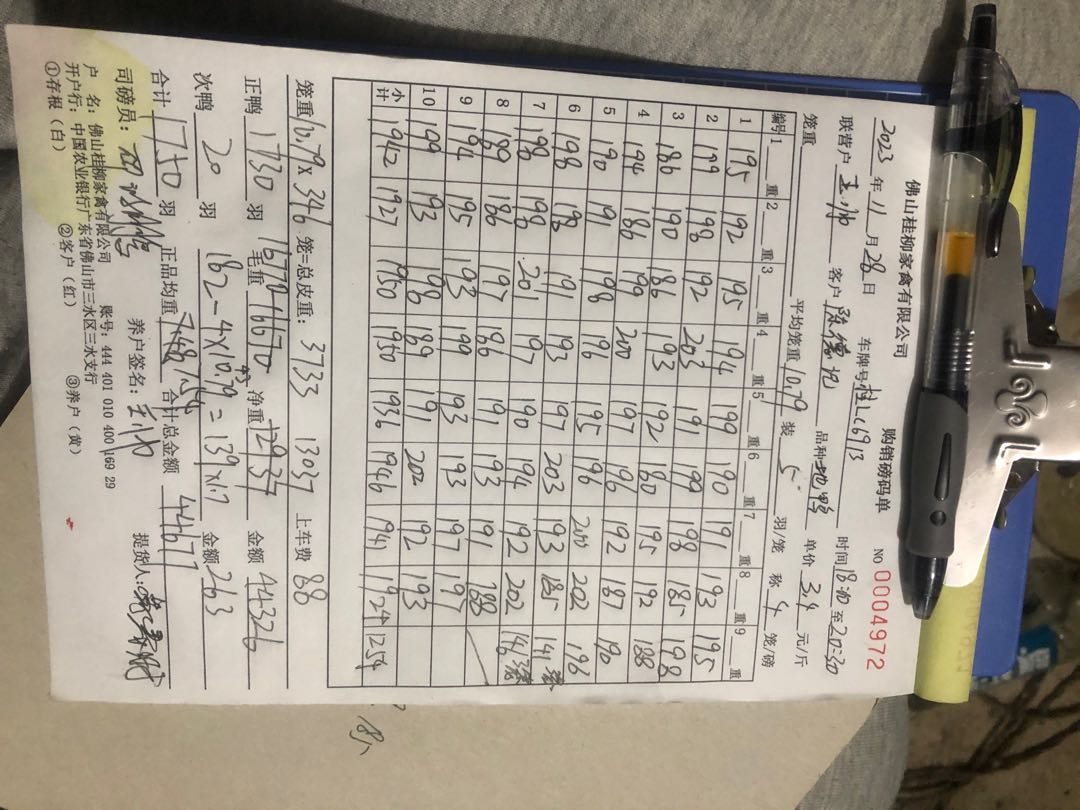 佛山桂柳家禽有限公司 购销磅码单 NO 0004972
2023 年 11 月 28 日 车牌号 桂LC6913 时间 18:30 至 20:30
联营户 王帅 客户 陈德记 品种 地鸭 单价 3.4 元/斤
笼重 平均笼重 10.79 装 5 羽/笼 称 4 笼/磅
编号 1 重 2 重 3 重 4 重 5 重 6 重 7 重 8 重 9 重
1 195 192 195 194 199 190 191 193 195
2 179 198 192 203 191 199 198 185 198
3 186 190 186 193 192 180 195 192 188
4 194 186 199 200 197 196 192 187 190
5 190 191 198 196 195 196 200 202 193
6 198 198 191 193 197 203 193 185 141
7 198 198 201 197 190 194 192 202 146
8 189 186 197 186 191 193 191 188
9 194 195 193 199 193 193 197 197
10 199 193 198 189 191 202 192 193
小计 1922 1927 1950 1950 1936 1946 1941 1924 1254
笼重 10.79 × 346 笼=总皮重: 3733 13037 上车费 88
正鸭 1730 羽 毛重 16770-16670 净重 12937 金额 44326
次鸭 20 羽 182-4×10.79=139×1.7 金额 263
合计 1750 羽 正品均重 7.48/斤 合计总金额 44677
司磅员: 养户签名: 王帅 提货人:
户 名: 佛山桂柳家禽有限公司 账号: 444 401 010 400 169 29
开户行: 中国农业银行广东省佛山市三水区三水支行
①存根(白) ②客户(红) ③养户(黄)